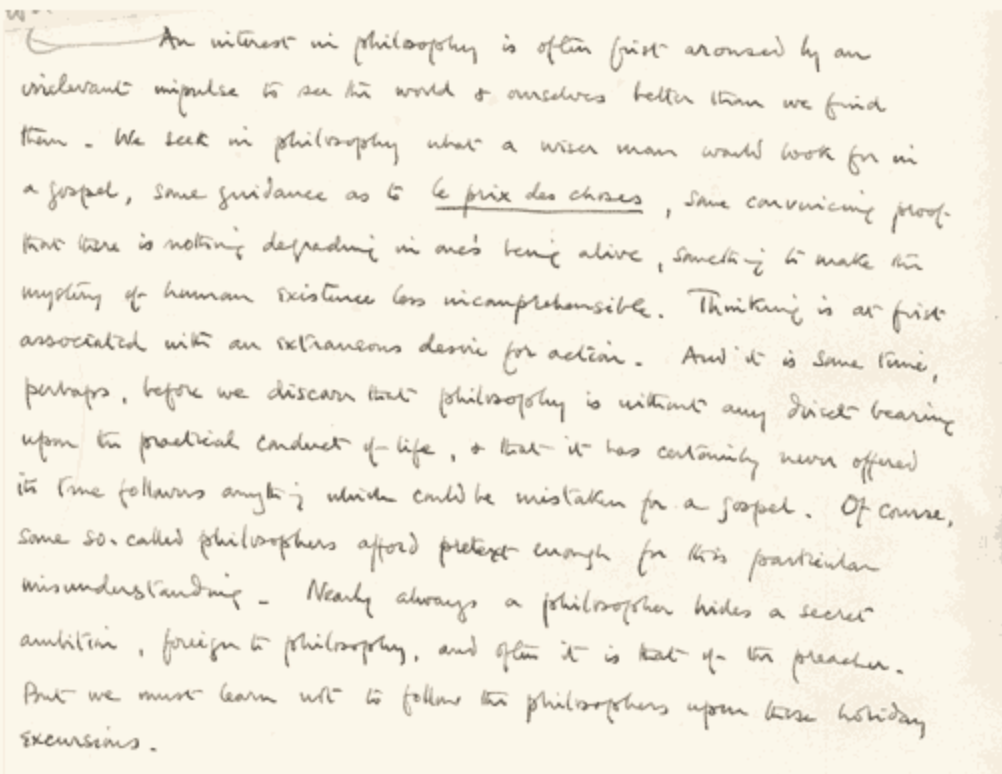 An interest in philosophy is often first aroused by an
irrelevant impulse to see the world & ourselves better than we find
them. We seek in philosophy what a wiser man would look for in
a gospel, some guidance as to le prix des choses, some convincing proof
that there is nothing degrading in one's being alive, something to make the
mystery of human existence less incomprehensible. Thinking is at first
associated with an extraneous desire for action. And it is some time,
perhaps, before we discern that philosophy is without any direct bearing
upon the practical conduct of life, & that it has certainly never offered
its true followers anything which could be mistaken for a gospel. Of course,
some so-called philosophers afford pretext enough for this particular
misunderstanding. Nearly always a philosopher hides a secret
ambition, foreign to philosophy, and often it is that of the preacher.
But we must learn not to follow the philosophers upon these holiday
excursions.